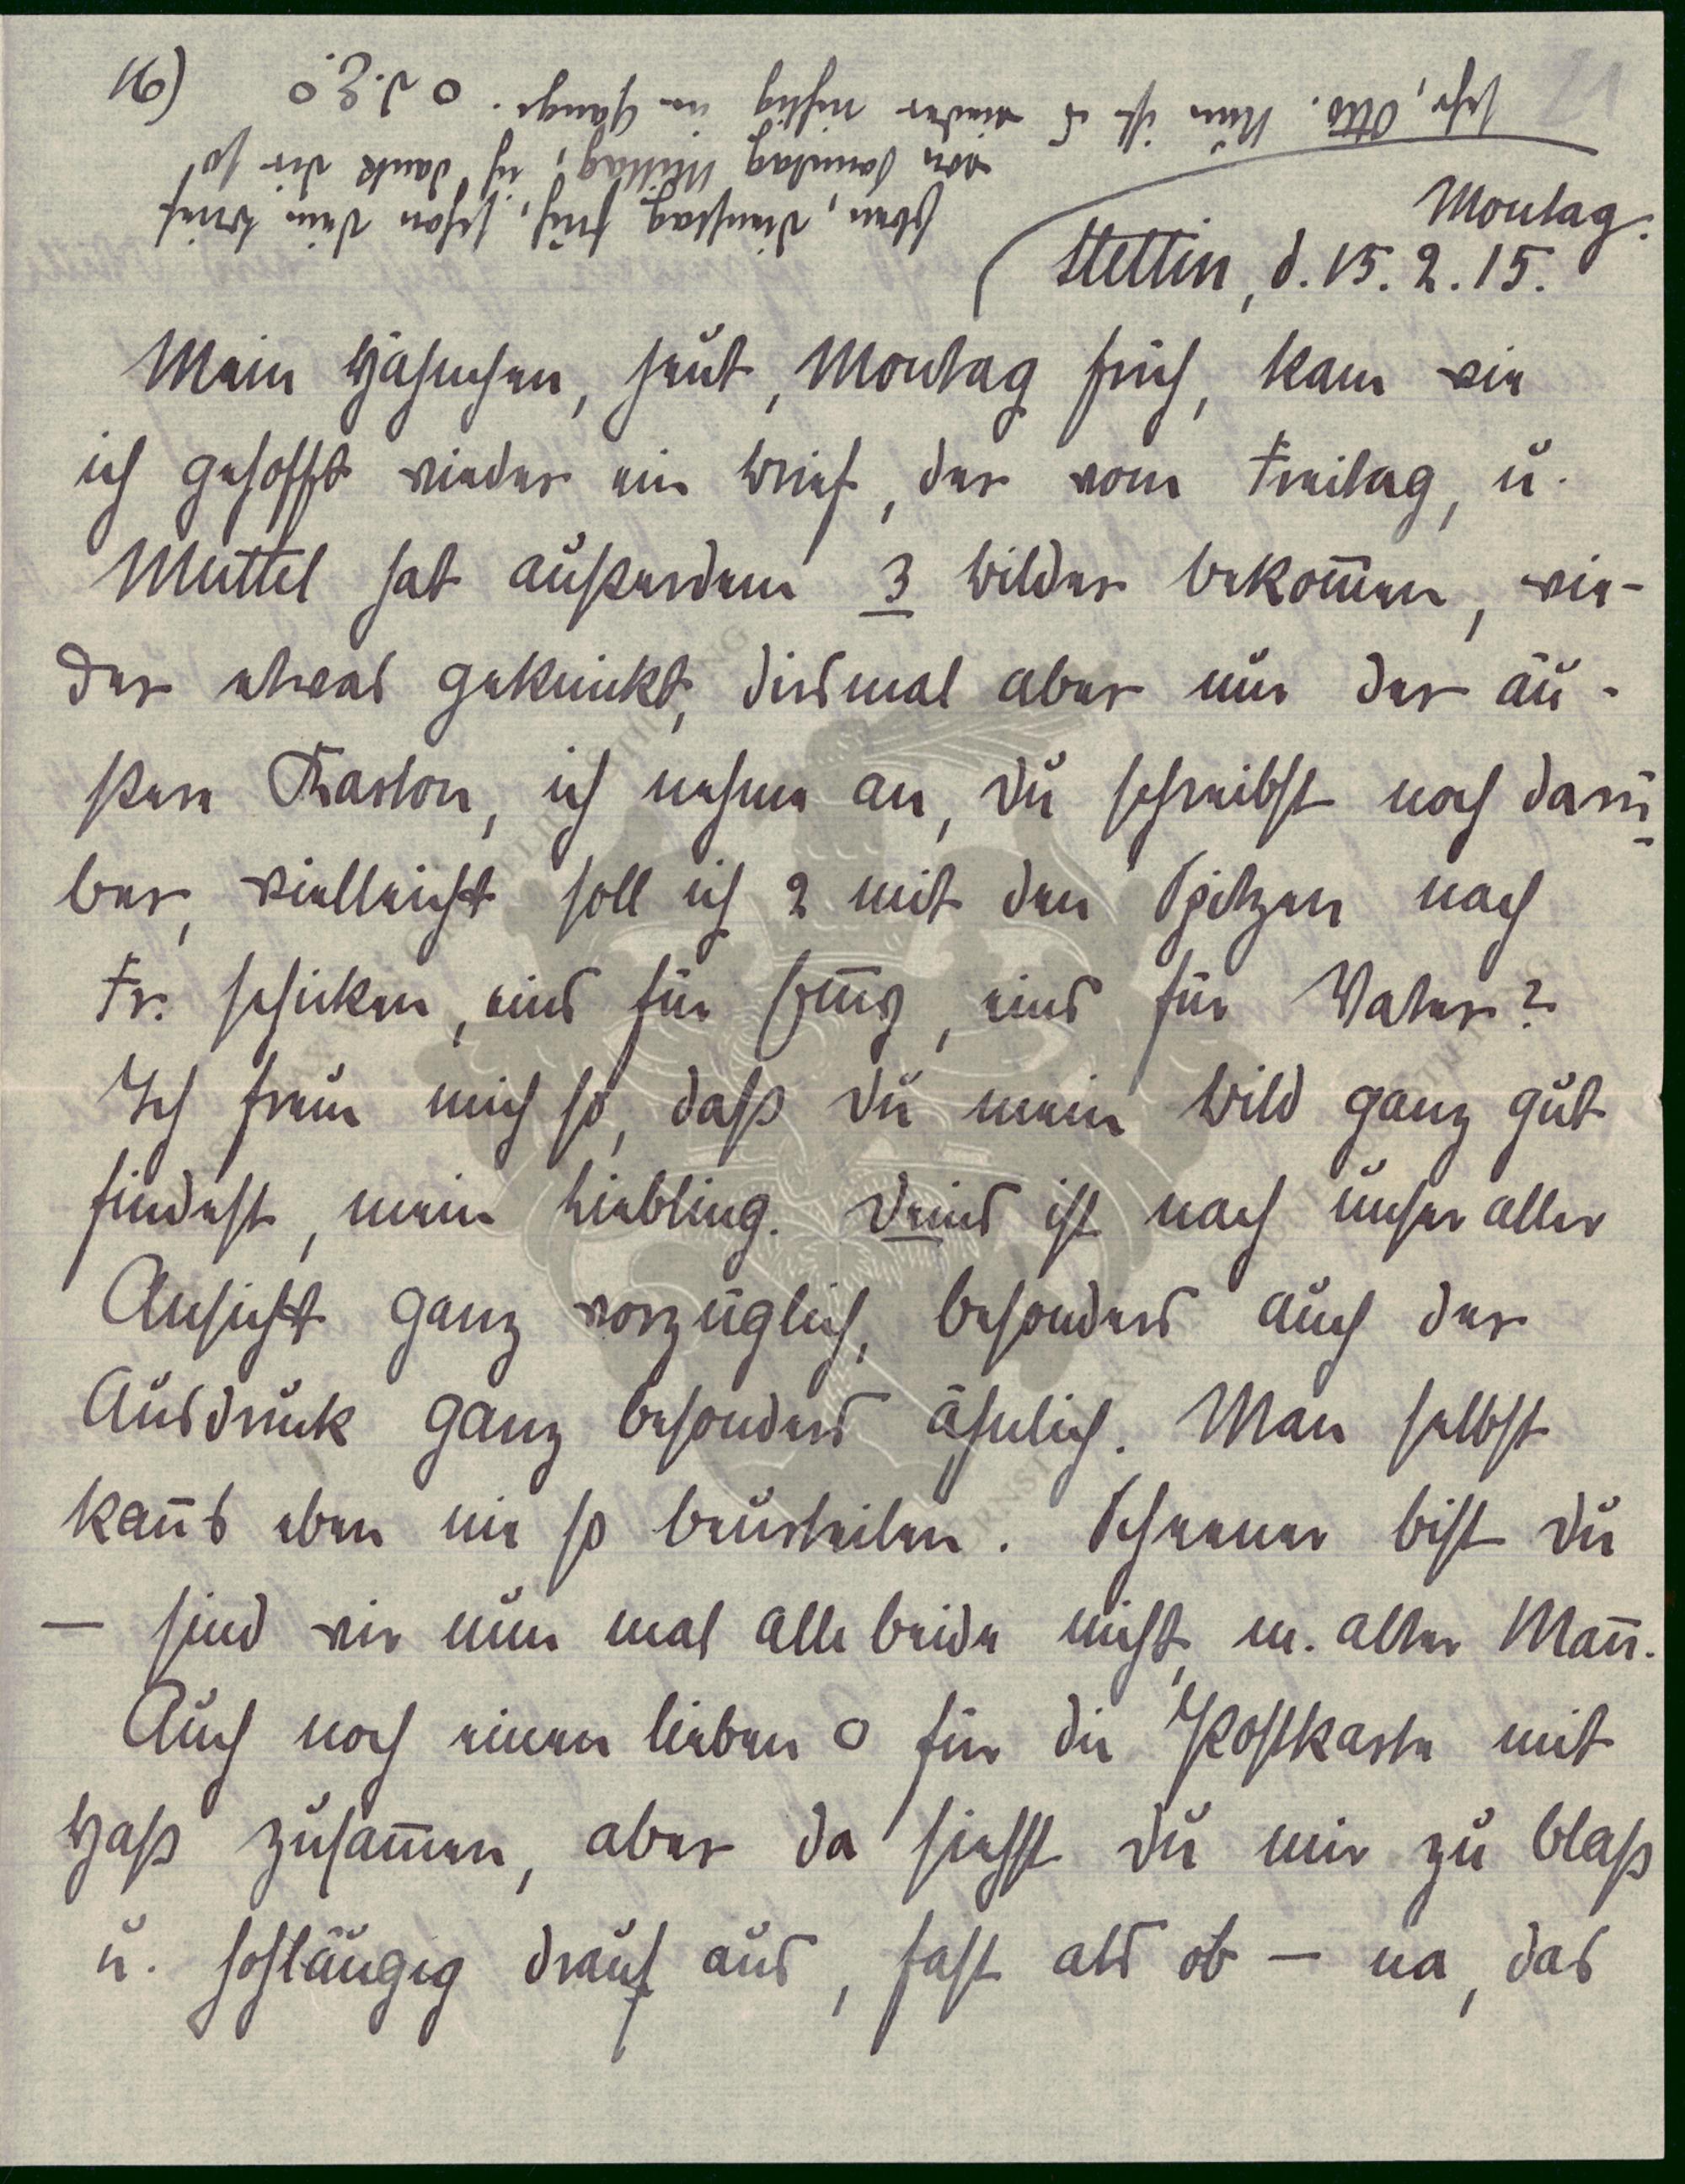 16)
21
Eben, Dienstag früh, schon Dein Brief
von Sonntag Mittag, ich dank Dir so
sehr, Otto. Nun ist es wieder richtig im Gange. O d. 3. O
Montag.
Stettin, d. 15. 2. 15.
Mein Häschen, heut, Montag früh, kam wie
ich gehofft wieder ein Brief, der vom Freitag, u.
Muttel hat außerdem 3 Bilder bekom̅en, wie-
der etwas geknickt, diesmal aber nur der äu-
ßere Karton, ich nehme an, Du schreibst noch darü-
ber, vielleicht soll ich 2 mit den Spitzen nach
Fr. schicken, eins für, eins für Vater?
Ich freue mich so, daß Du mein Bild ganz gut
findest, mein Liebling. Deins ist nach unser aller
Ansicht ganz vorzüglich, besonders auch der
Ausdruck ganz besonders ähnlich. Man selbst
kan̅s eben nie so beurteilen. Schöner bist Du
— sind wir nun mal alle beide nicht, m. alter Man̅.
Auch noch einen lieben O für die Postkarte mit
Haß zusam̅en, aber da siehst Du mir zu blaß
u. hohläugig drauf aus, fast als ob — na, das